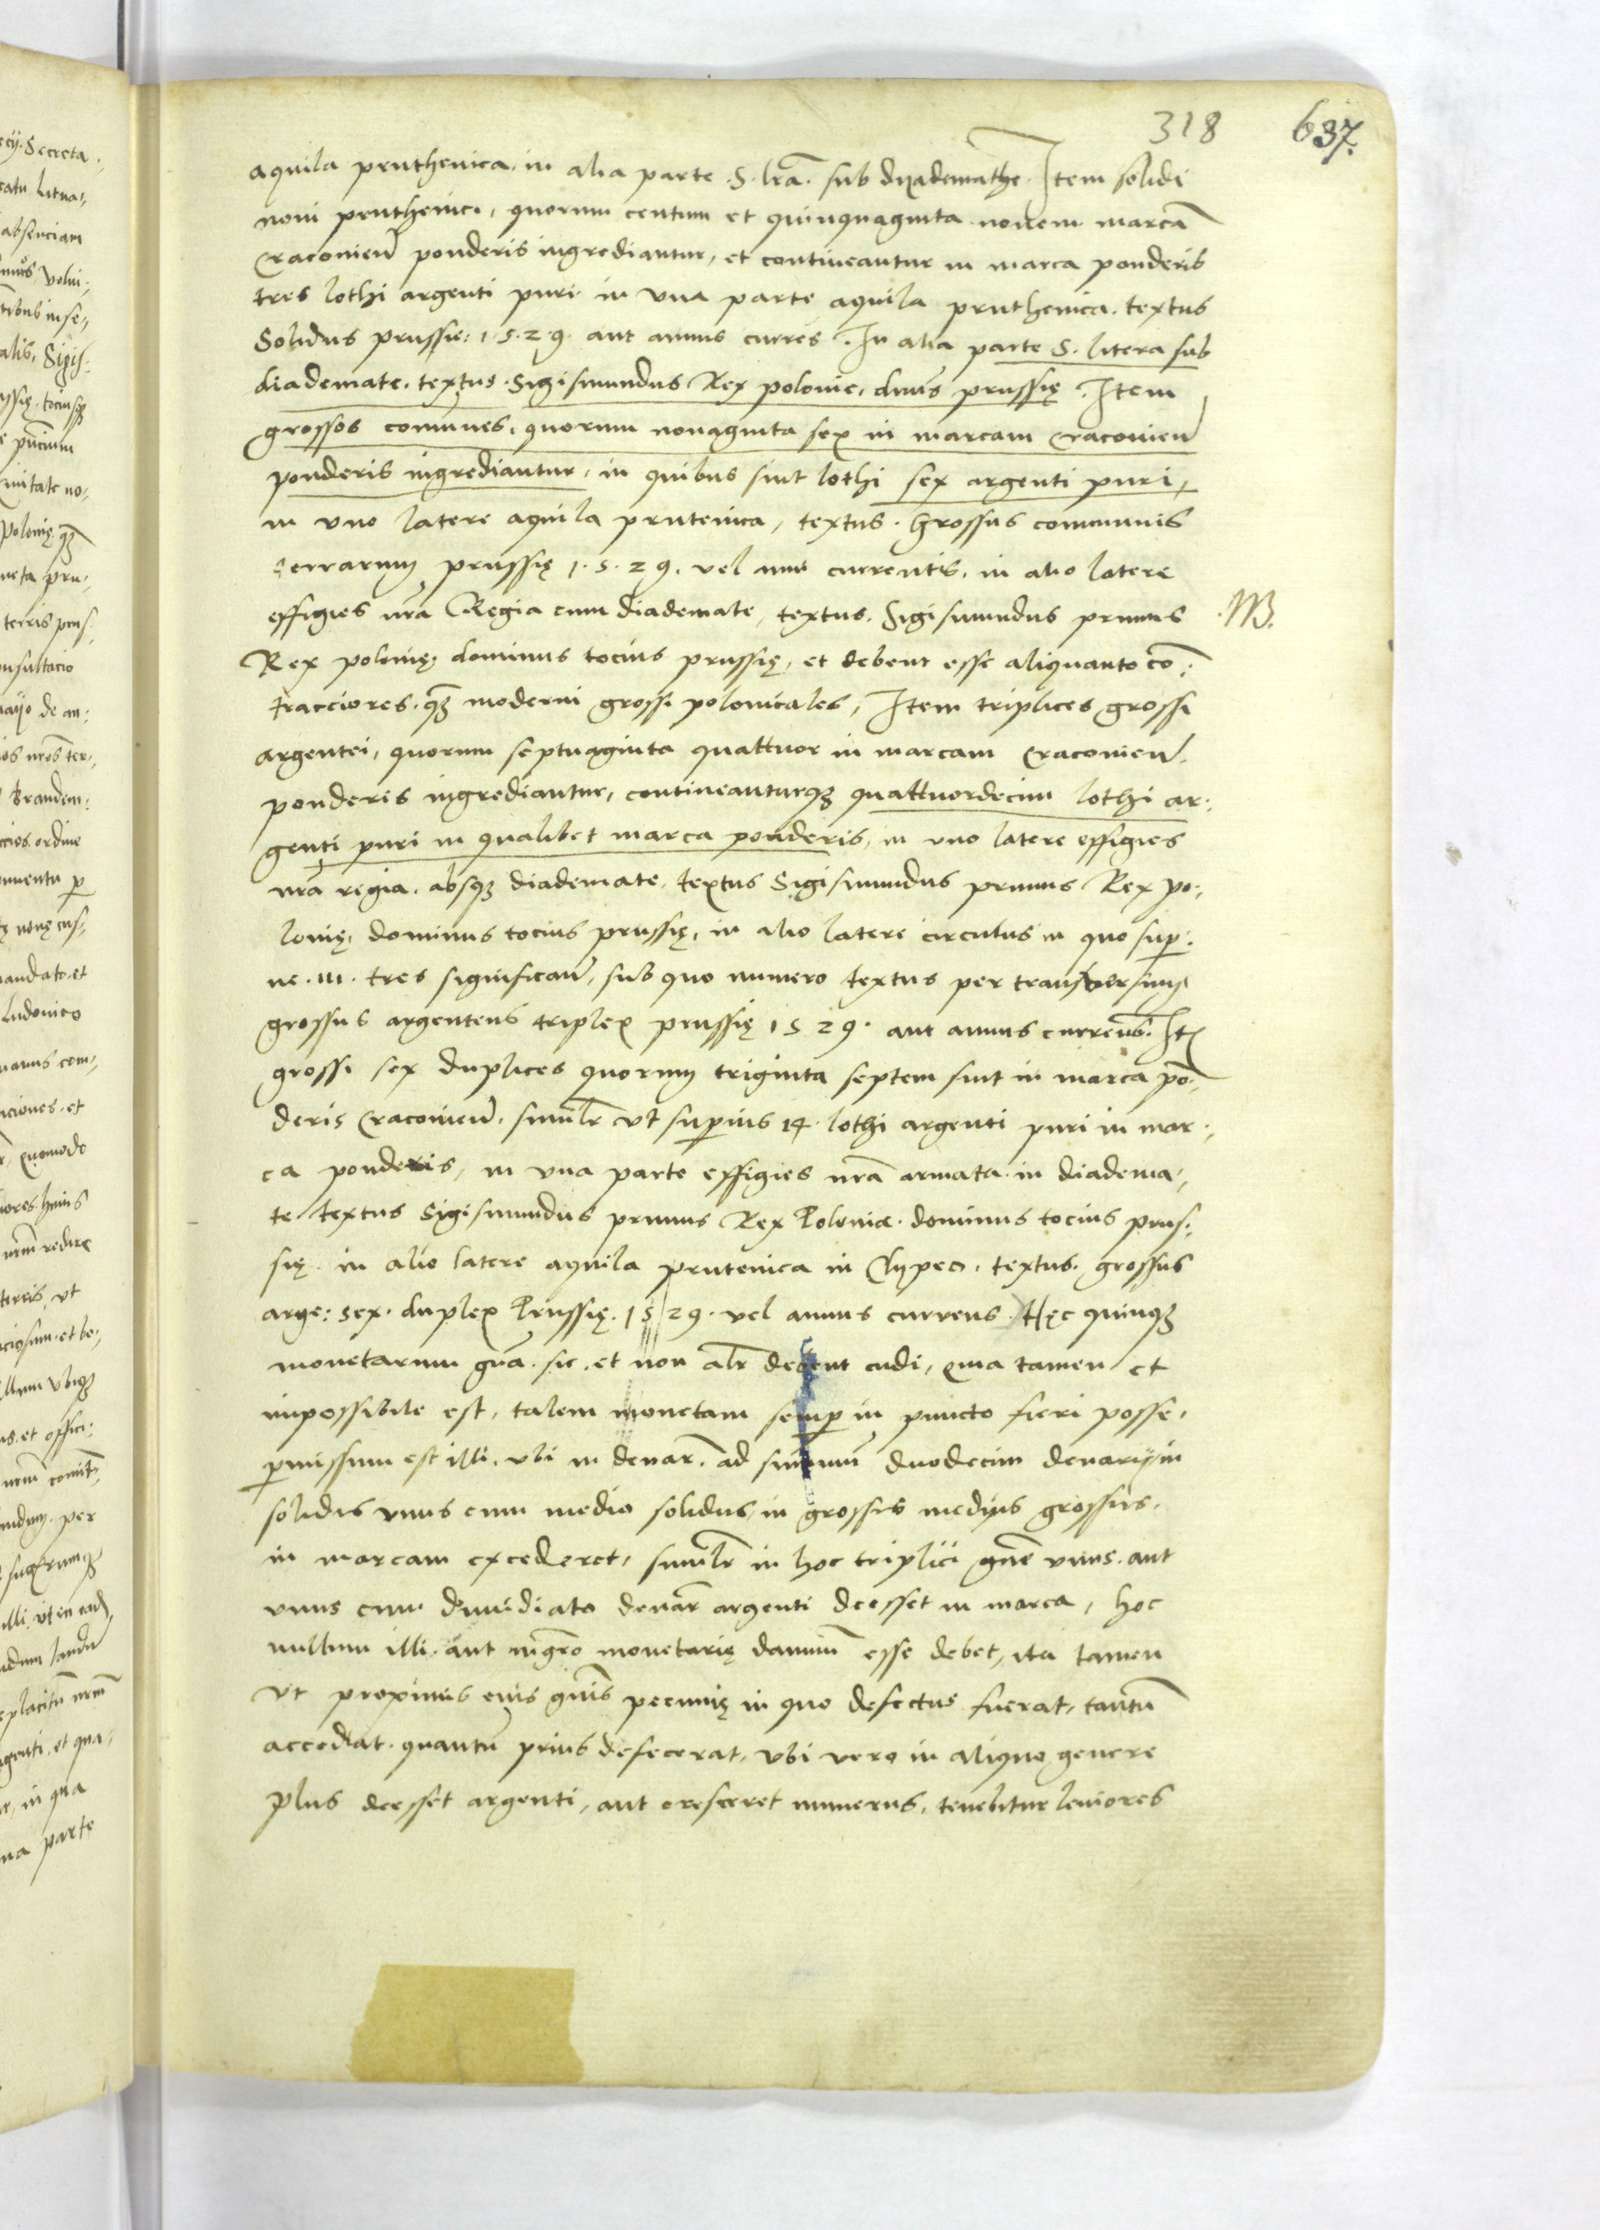 318 637.
aquila pruthenica. in alia parte .S. lrã. sub dyademathe. Item solidi
noui pruthenici, quorum centum et quinquaginta nouem marcã
Cracouien̄ ponderis ingrediantur, et contineantur in marca ponderis
tres lothi argenti puri in vna parte aquila pruthenica. textus
Solidus prussie: 1.5.2.9. aut annus curres̄. In alia parte S. litera sub
diademate. textus. Sigismundus Rex polonie, dnūs prussię. Item
grossos comūnes, quorum nonaginta sex in marcam Cracouien̄
ponderis ingrediantur, in quibus sint lothi sex argenti puri,
in vno latere aquila prutenica, textus. Grossus communis
terrarum prussię 1.5.29. vel anni currentis. in alio latere
effigies nrã Regia cum diademate, textus. Sigismundus primus
NB.
Rex polonię, dominus tocius prussię, et debent esse aliquanto cõ:
tracciores. qz̃ moderni grossi polonicales, Item triplices grossi
argentei, quorum septuaginta quattuor in marcam Cracouien̄.
ponderis ingrediantur, contineanturqz quattuordecim lothi ar:
genti puri in qualibet marca ponderis, in vno latere effigies
nrã regia. absqz diademate, textus Sigismundus primus Rex po:
lonię, dominus tocius prussię, in alio latere circulus in quo sup̱:
ne .III. tres significan̄, sub quo numero textus per transversum
grossus argenteus triplex prussię 1529. aut annus currens̄. Itẽ
grossi sex duplices quorum triginta septem sint in marca põ:
deris Cracouien̄. similr̃ vt sup̱ius 14. lothi argenti puri in mar:
ca ponderis, in vna parte effigies nrã armata in diadema:
te textus Sigismundus primus Rex Poloniæ. dominus tocius prus:
się. in alio latere aquila prutenica in Clypeo. textus. grossus
arge: sex. duplex Prussię. 1529. vel annus currens. Hęc quinqz
monetarum gnã. sic, et non alr̃ debent cudi, quia tamen et
impossibile est, talem monetam semp̱ in puncto fieri posse,
p̱missum est illi, vbi in denar̃. ad sum̄um duodecim denarij in
solidis vnus cum medio solidus, in grossis medius grossus.
in marcam excederet, similr̃ in hoc triplici gnẽ vnus. aut
vnus cum dimidiato denar̃ argenti deesset in marca, hoc
nullum illi. aut mgr̃o monetarię damnũ esse debet, ita tamen
vt proximis eius gnĩs pecunię in quo defectus fuerat, tantũ
accedat. quantũ prius defecerat, vbi vero in aliquo genere
plus deesset argenti, aut cresceret numerus, tenebitur leuiores